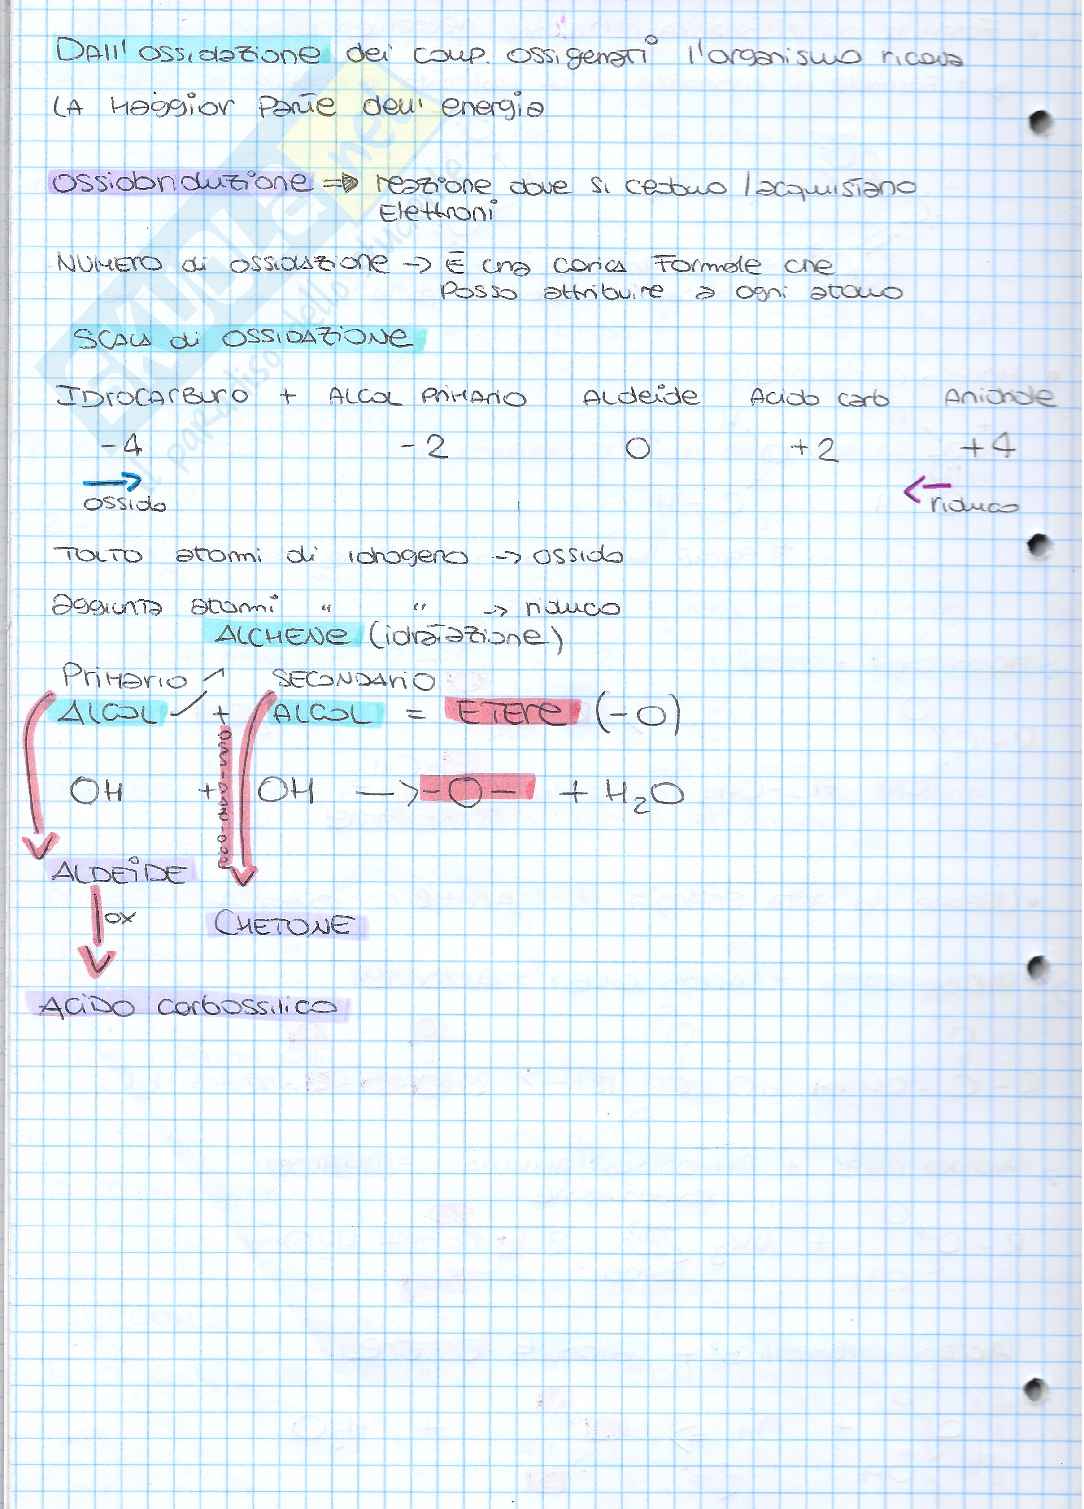 DALL' OSSIDAZIONE dei comp. ossigenati l'organismo ricava
LA MAGGIOR PARTE dell' energia
OSSIDORIDUZIONE => reazione dove si cedono / acquistano
Elettroni
NUMERO di OSSIDAZIONE -> È una carica FORMALE che
POSSO attribuire a ogni atomo
SCALA di OSSIDAZIONE
IDROCARBURO + ALCOL PRIMARIO ALDEIDE Acido carb Anidride
-4 -2 0 +2 +4
ossido riduco
TOLTO atomi di idrogeno -> OSSIDO
aggiunta atomi " " -> riduco
ALCHENE (idratazione)
PRIMARIO SECONDARIO
ALCOL + ALCOL = ETERE (-O)
OH + OH -> -O- + H2O
ALDEIDE
ox
CHETONE
ACIDO carbossilico
SKUOLA.net
il paradiso dello